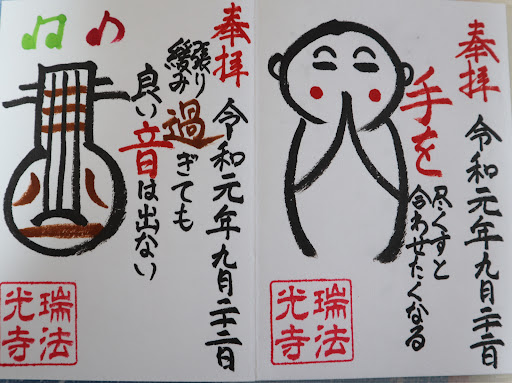 奉拝
令和元年九月二十二日
手を
尽くすと
合わせたくなる
瑞法
光寺
奉拝
令和元年九月二十二日
張り
緩み
過ぎても
良い音は出ない
瑞法
光寺